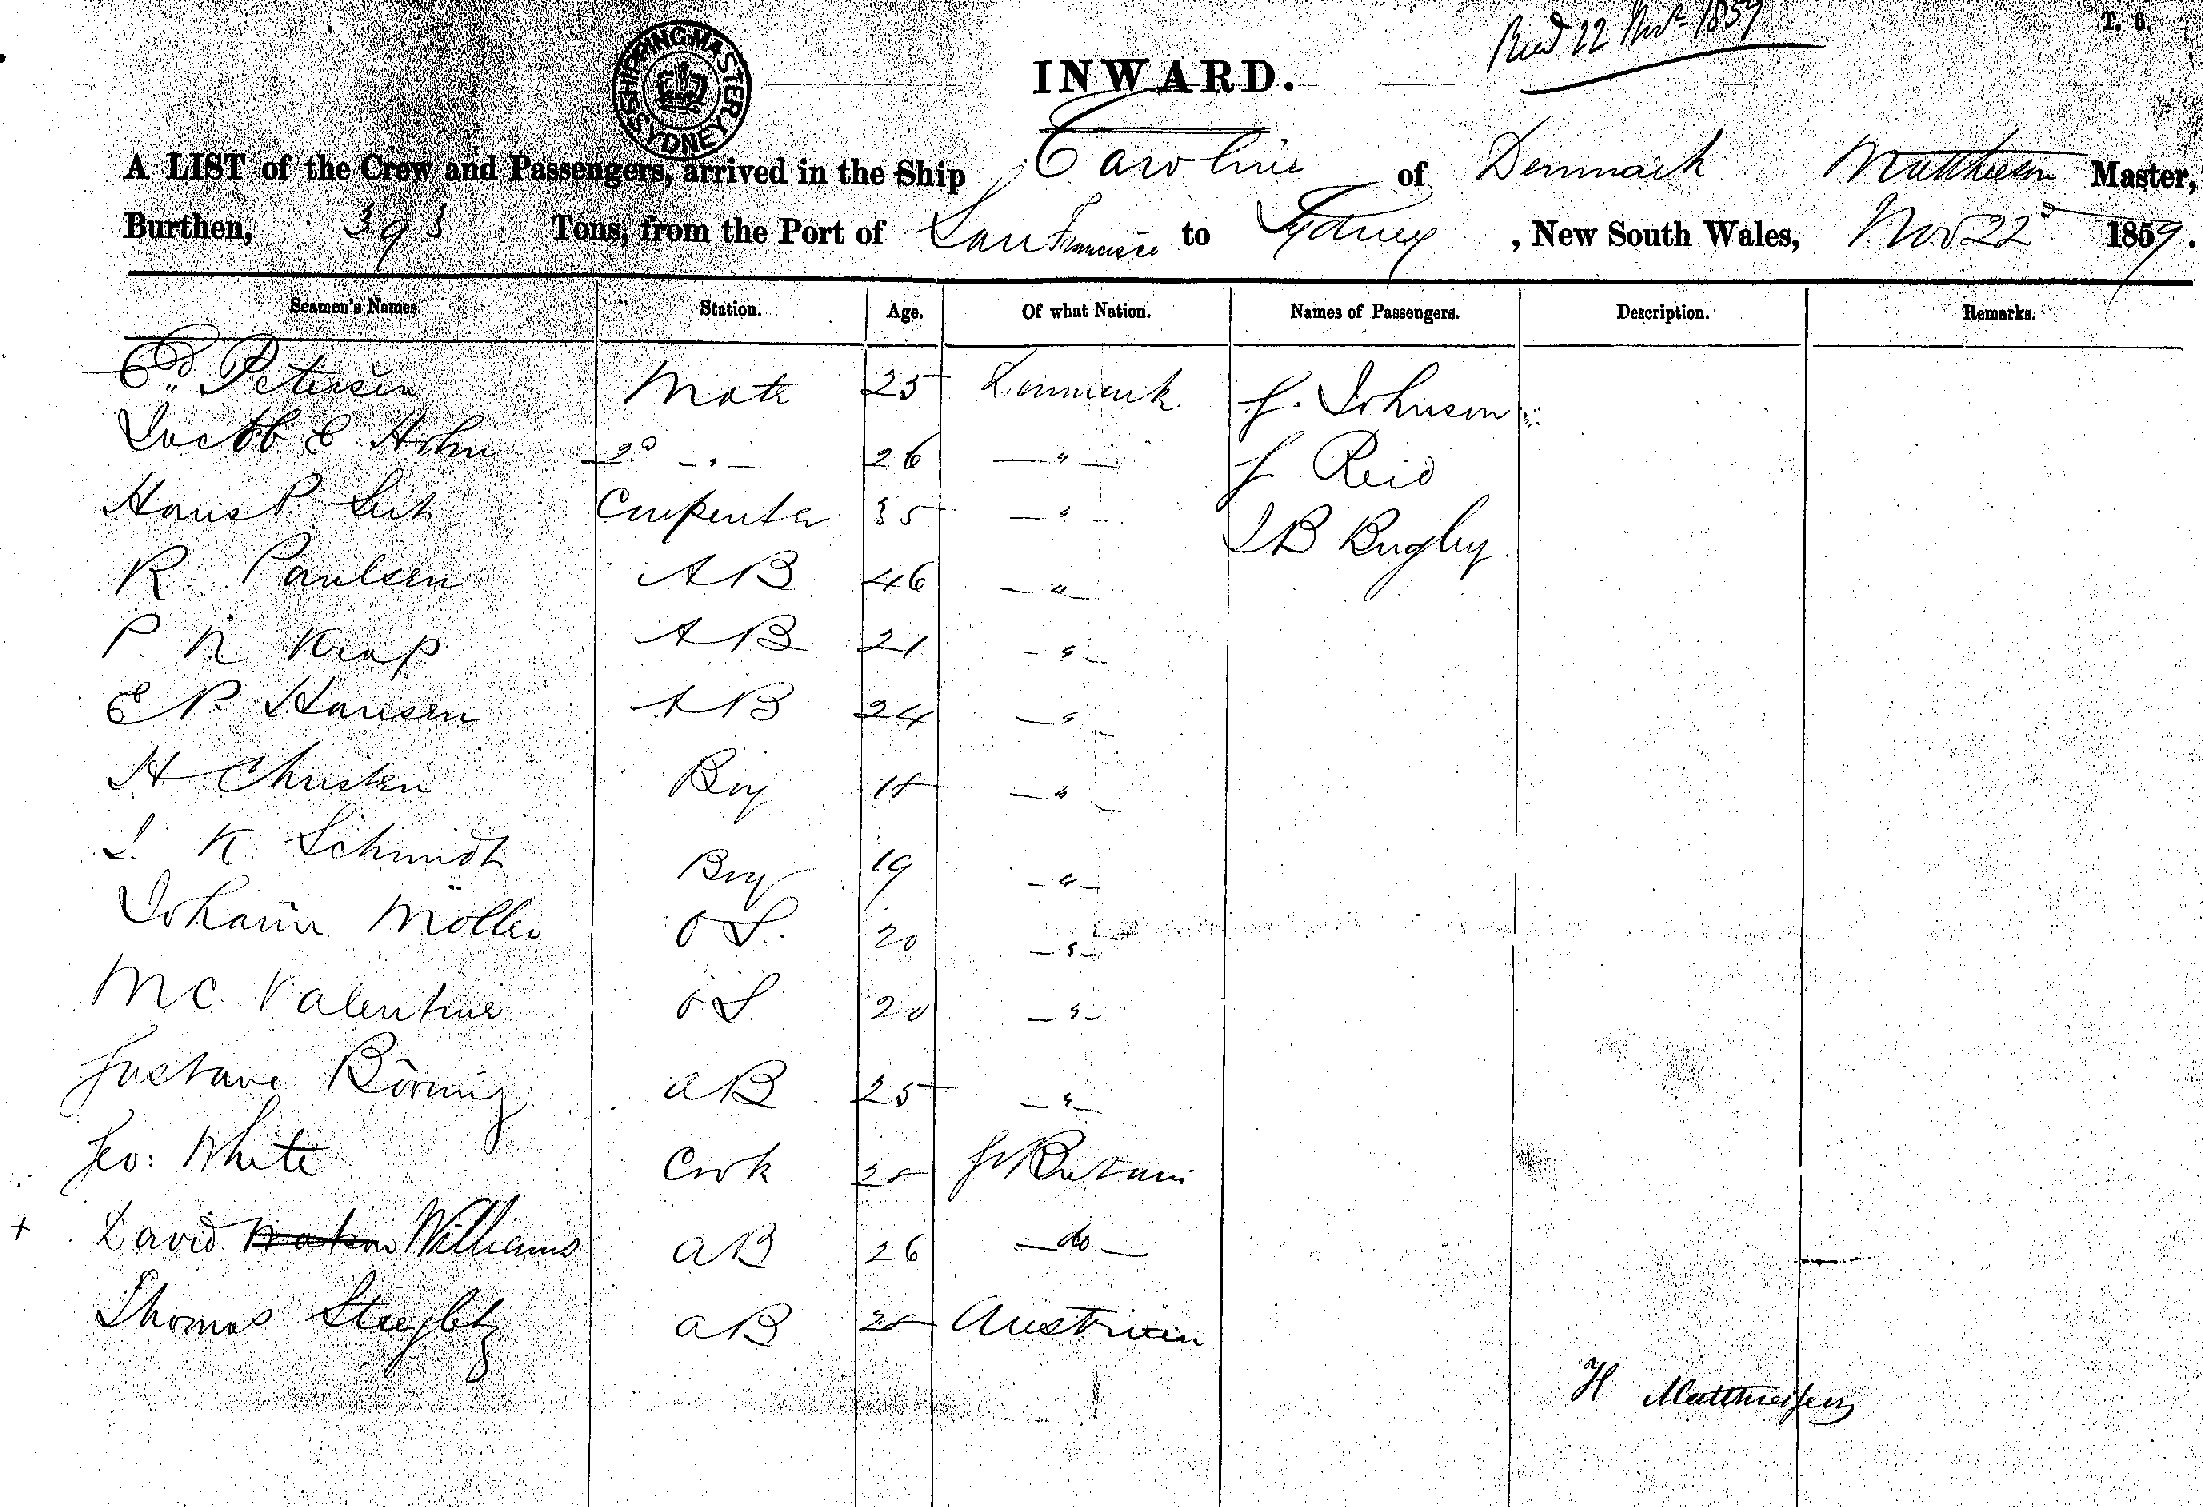 Recd 22 Nov 1859
T. 6.
SHIPPING MASTER SYDNEY
INWARD.
A LIST of the Crew and Passengers, arrived in the Ship Caroline of Denmark Matthiesen Master,
Burthen, 393 Tons, from the Port of San Francisco to Sydney, New South Wales, Nov 22d 1859.
Seamen's Names. Station. Age. Of what Nation. Names of Passengers. Description. Remarks.
Ed. Petersen Mate 25 Denmark G. Johnson
Jacob E Holm 2d - " - 26 - " - G Reid
Hans P Carpenter 35 - " - J B Bugby
R Paulsen AB 46 - " -
P. N AB 21 - " -
E P Hansen AB 24 - " -
H Christen Boy 18 - " -
J. K Schmidt Boy 19 - " -
Johann Möller OS. 20 - " -
M C Valentine OS 20 - " -
Gustave Börnig AB 25 - " -
Geo: White Cook Gt Britain
+ David Williams AB 26 - do -
Thomas AB Austrian
H Matthiessen